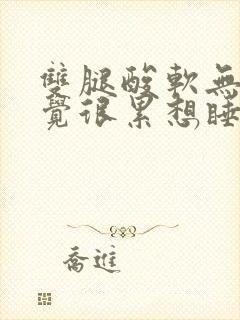 雙腿酸軟無
覺很累想睡
喬進